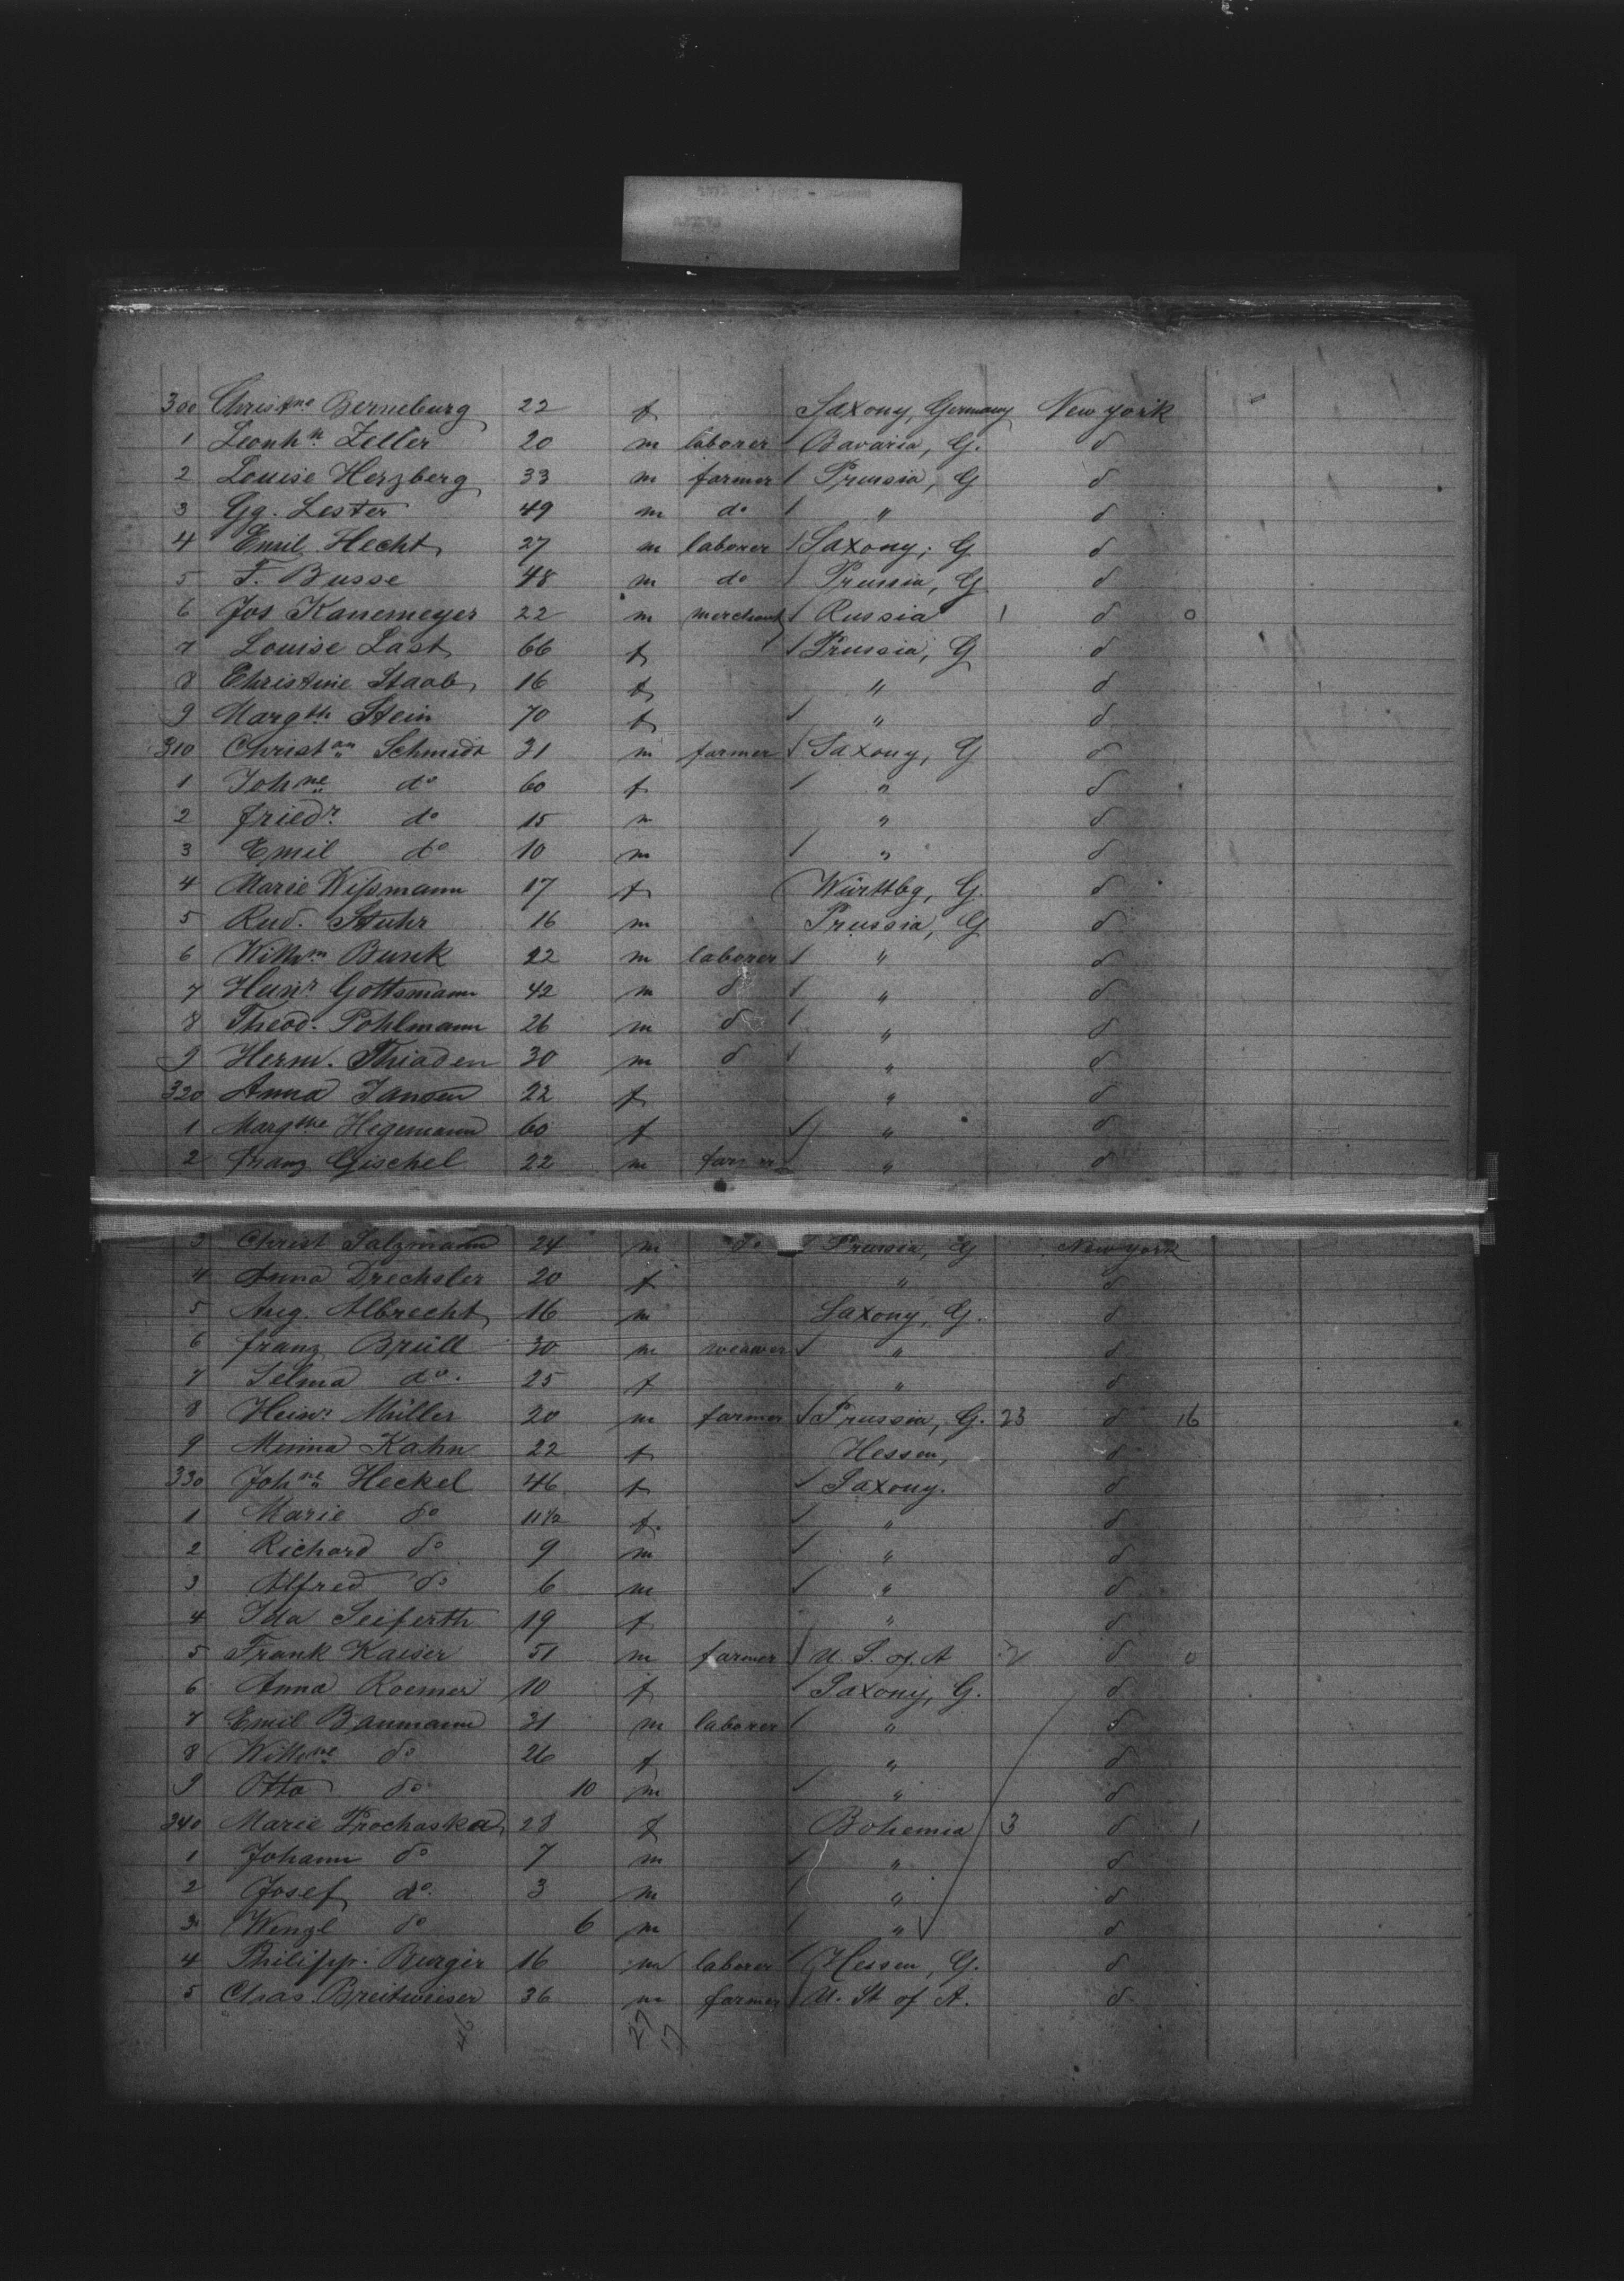 300 Christne Berneburg 22 f Saxony, Germany New york
1 Leonhn Zeller 20 m laborer Bavaria, G. d
2 Louise Herzberg 33 m farmer Prussia, G d
3 Gg. Lester 49 m do " d
4 Emil Hecht 27 m laborer Saxony, G d
5 F. Busse 48 m do Prussia, G d
6 Jos Kanemeyer 22 m merchant Russia 1 d 0
7 Louise Last 66 f Prussia, G d
8 Christine Staab 16 f " d
9 Margth Stein 70 f " d
310 Christan Schmidt 31 m farmer Saxony, G d
1 Johne do 60 f " d
2 Friedr. do 15 m " d
3 Emil do 10 m " d
4 Marie Wißmann 17 f Württbg, G. d
5 Rud. Stuhr 16 m Prussia, G d
6 Willhm Bunk 22 m laborer " d
7 Heinr Gottsmann 42 m d " d
8 Theod. Pohlmann 26 m d " d
9 Herm. Thiaden 30 m d " d
320 Anna Jansen 22 f " d
1 Margthe Hegemann 60 f " d
2 Franz Gischel 22 m farmer " d
3 Christ Salzmann 24 m do Prussia, G New york
4 Anna Drechsler 20 f " d
5 Aug. Albrecht 16 m Saxony, G. d
6 Franz Brüll 30 m weawer " d
7 Selma do. 25 f " d
8 Heinr Müller 20 m farmer Prussia, G. 23 d 16
9 Minna Kahn 22 f Hessen, d
330 Johne Heckel 46 f Saxony. d
1 Marie do 11½ f. " d
2 Richard do 9 m " d
3 Alfred do 6 m " d
4 Ida Seiferth 19 f " d
5 Frank Kaiser 51 m farmer U. S. of. A d 0
6 Anna Roemer 10 f Saxony, G. d
7 Emil Baumann 31 m laborer " d
8 Willhne do 26 f " d
9 Otto do 10 m " d
340 Marie Prochaska 28 f Bohemia 3 d 1
1 Johann do 7 m " d
2 Josef do. 3 m " d
3 Wenzl do 6 m " d
4 Philipp. Burger 16 m laborer Hessen, G. d
5 Chas. Breitwieser 36 m farmer U. St of A. d
46 27 17